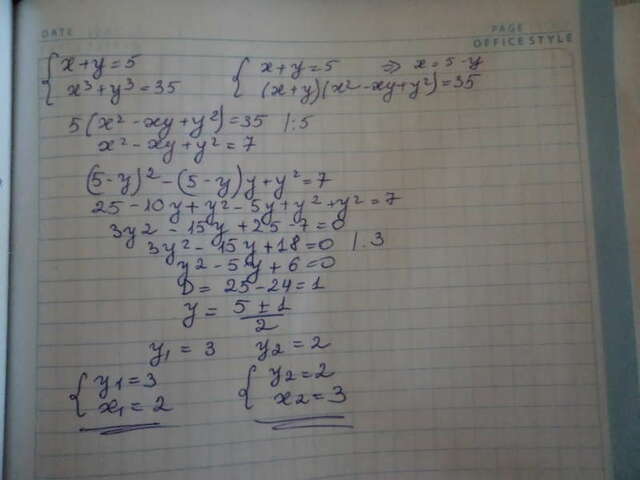 DATE
PAGE
OFFICE STYLE
{ x+y=5 { x+y=5 => x=5-y
x³+y³=35 (x+y)(x²-xy+y²)=35
5(x²-xy+y²)=35 |:5
x²-xy+y²=7
(5-y)²-(5-y)y+y²=7
25-10y+y²-5y+y²+y²=7
3y2-15y+25-7=0
3y²-15y+18=0 |:3
y2-5y+6=0
D=25-24=1
y=(5±1)/2
y₁=3 y2=2
{ y1=3 { y2=2
x₁=2 x2=3